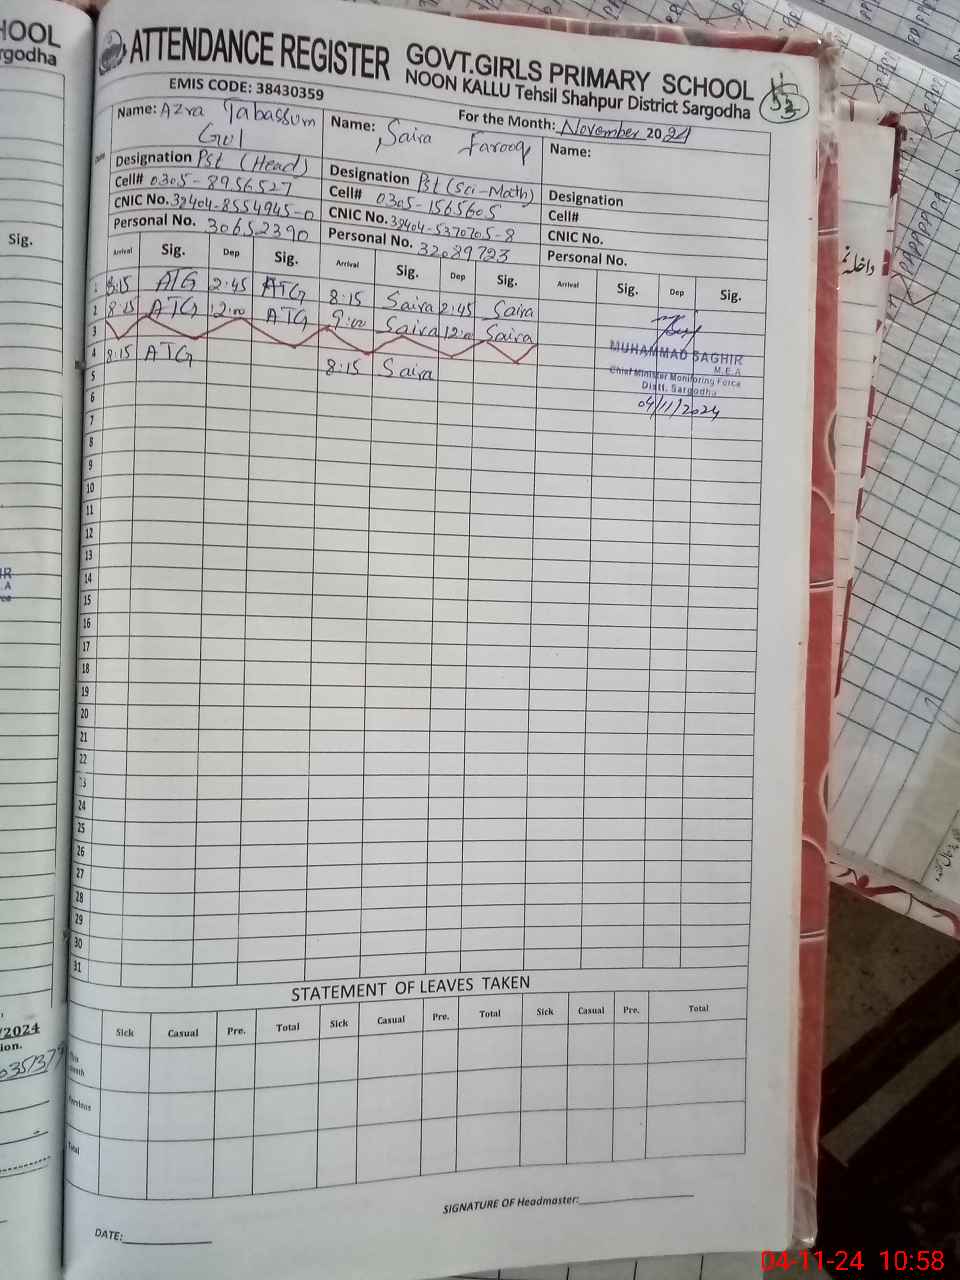 HOOL
rgodha
ATTENDANCE REGISTER GOVT.GIRLS PRIMARY SCHOOL
NOON KALLU Tehsil Shahpur District Sargodha
EMIS CODE: 38430359
For the Month: November 2024
Name: Azra Tabassum Gul
Name: Saira Farooq
Name:
Designation Pst (Head)
Designation Pst (Sci-Math)
Designation
Cell# 0305-8956527
Cell# 0305-1565605
Cell#
CNIC No. 38404-8554945-0
CNIC No. 38404-5370705-8
CNIC No.
Personal No. 30652390
Personal No. 32089723
Personal No.
Sig.
Arrival Sig. Dep Sig. Arrival Sig. Dep Sig. Arrival Sig. Dep Sig.
1 8:15 ATG 2:45 ATG 8:15 Saira 2:45 Saira
2 8:15 ATG 12:00 ATG 9:00 Saira 12:00 Saira
3
4 8:15 ATG 8:15 Saira
MUHAMMAD SAGHIR
M.E.A
Chief Minister Monitoring Force
Distt. Sargodha
04/11/2024
5
6
7
8
9
10
11
12
13
14
15
16
17
18
19
20
21
22
23
24
25
26
27
28
29
30
31
STATEMENT OF LEAVES TAKEN
Sick Casual Pre. Total Sick Casual Pre. Total Sick Casual Pre. Total
Total
SIGNATURE OF Headmaster:
DATE:
/2024
ion.
داخلہ نم
04-11-24 10:58